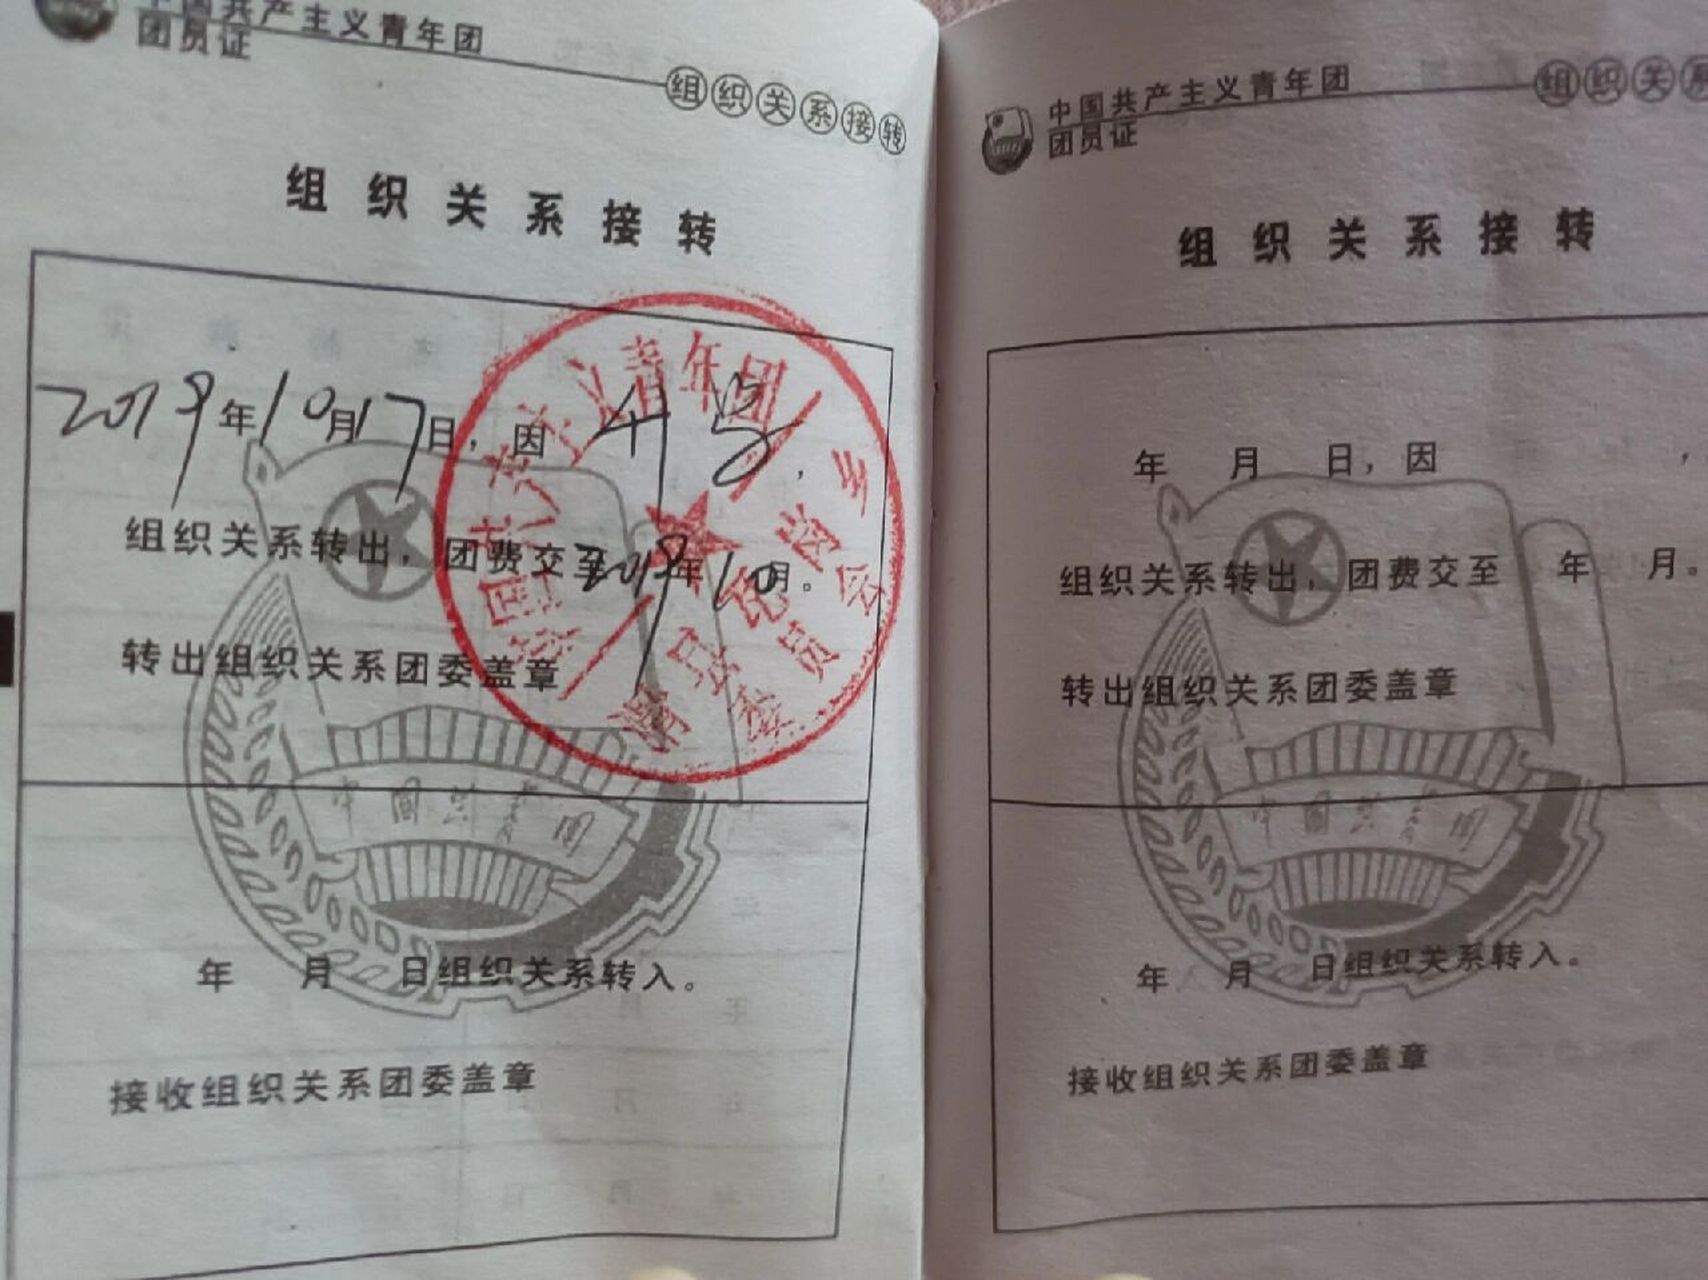 中国共产主义青年团
团员证
组织关系接转
组织关系接转
2019年10月17日，因
组织关系转出，团费交至2019年10月。
转出组织关系团委盖章
共产主义青年团
委员会
中国共青团
年 月 日组织关系转入。
接收组织关系团委盖章
中国共产主义青年团
团员证
组织关系
组织关系接转
年 月 日，因 ，
组织关系转出，团费交至 年 月。
转出组织关系团委盖章
中国共青团
年 月 日组织关系转入。
接收组织关系团委盖章